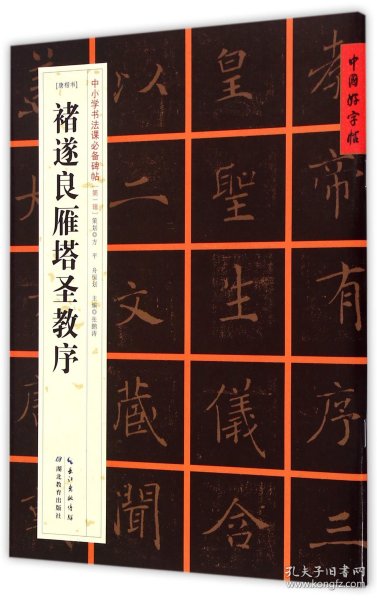 中國好字帖
教
有
序
三
皇
聖
生
儀
含
以
二
文
藏
聞
蓋
[唐楷书]
褚遂良雁塔圣教序
中小学书法课必备碑帖
[第一辑] 策划◎方平 主编◎张鹏涛
长江出版传媒
湖北教育出版社
孔夫子旧书网
www.kongfz.com